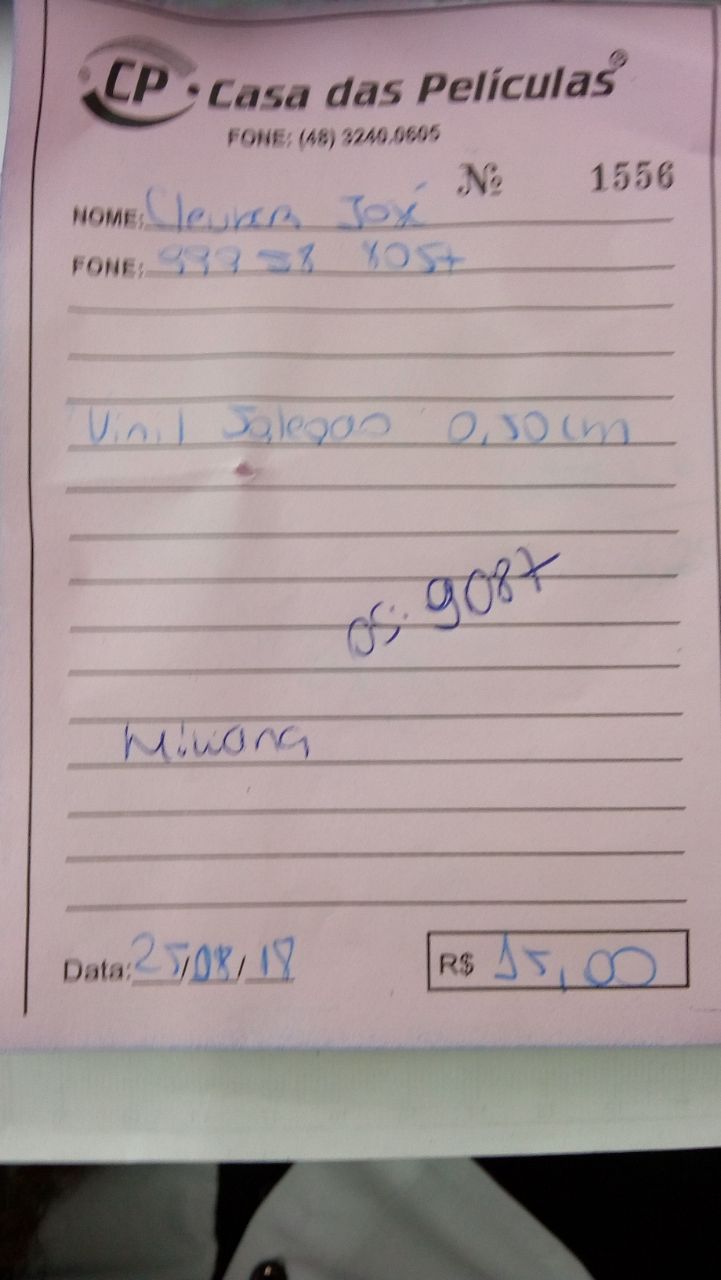 CP • Casa das Películas®
FONE: (48) 3240.0605
Nº 1556
NOME: José
FONE: 999 8057
Vinil 0,50 cm
OS: 9087
Data: 25/08/18
R$ 15,00